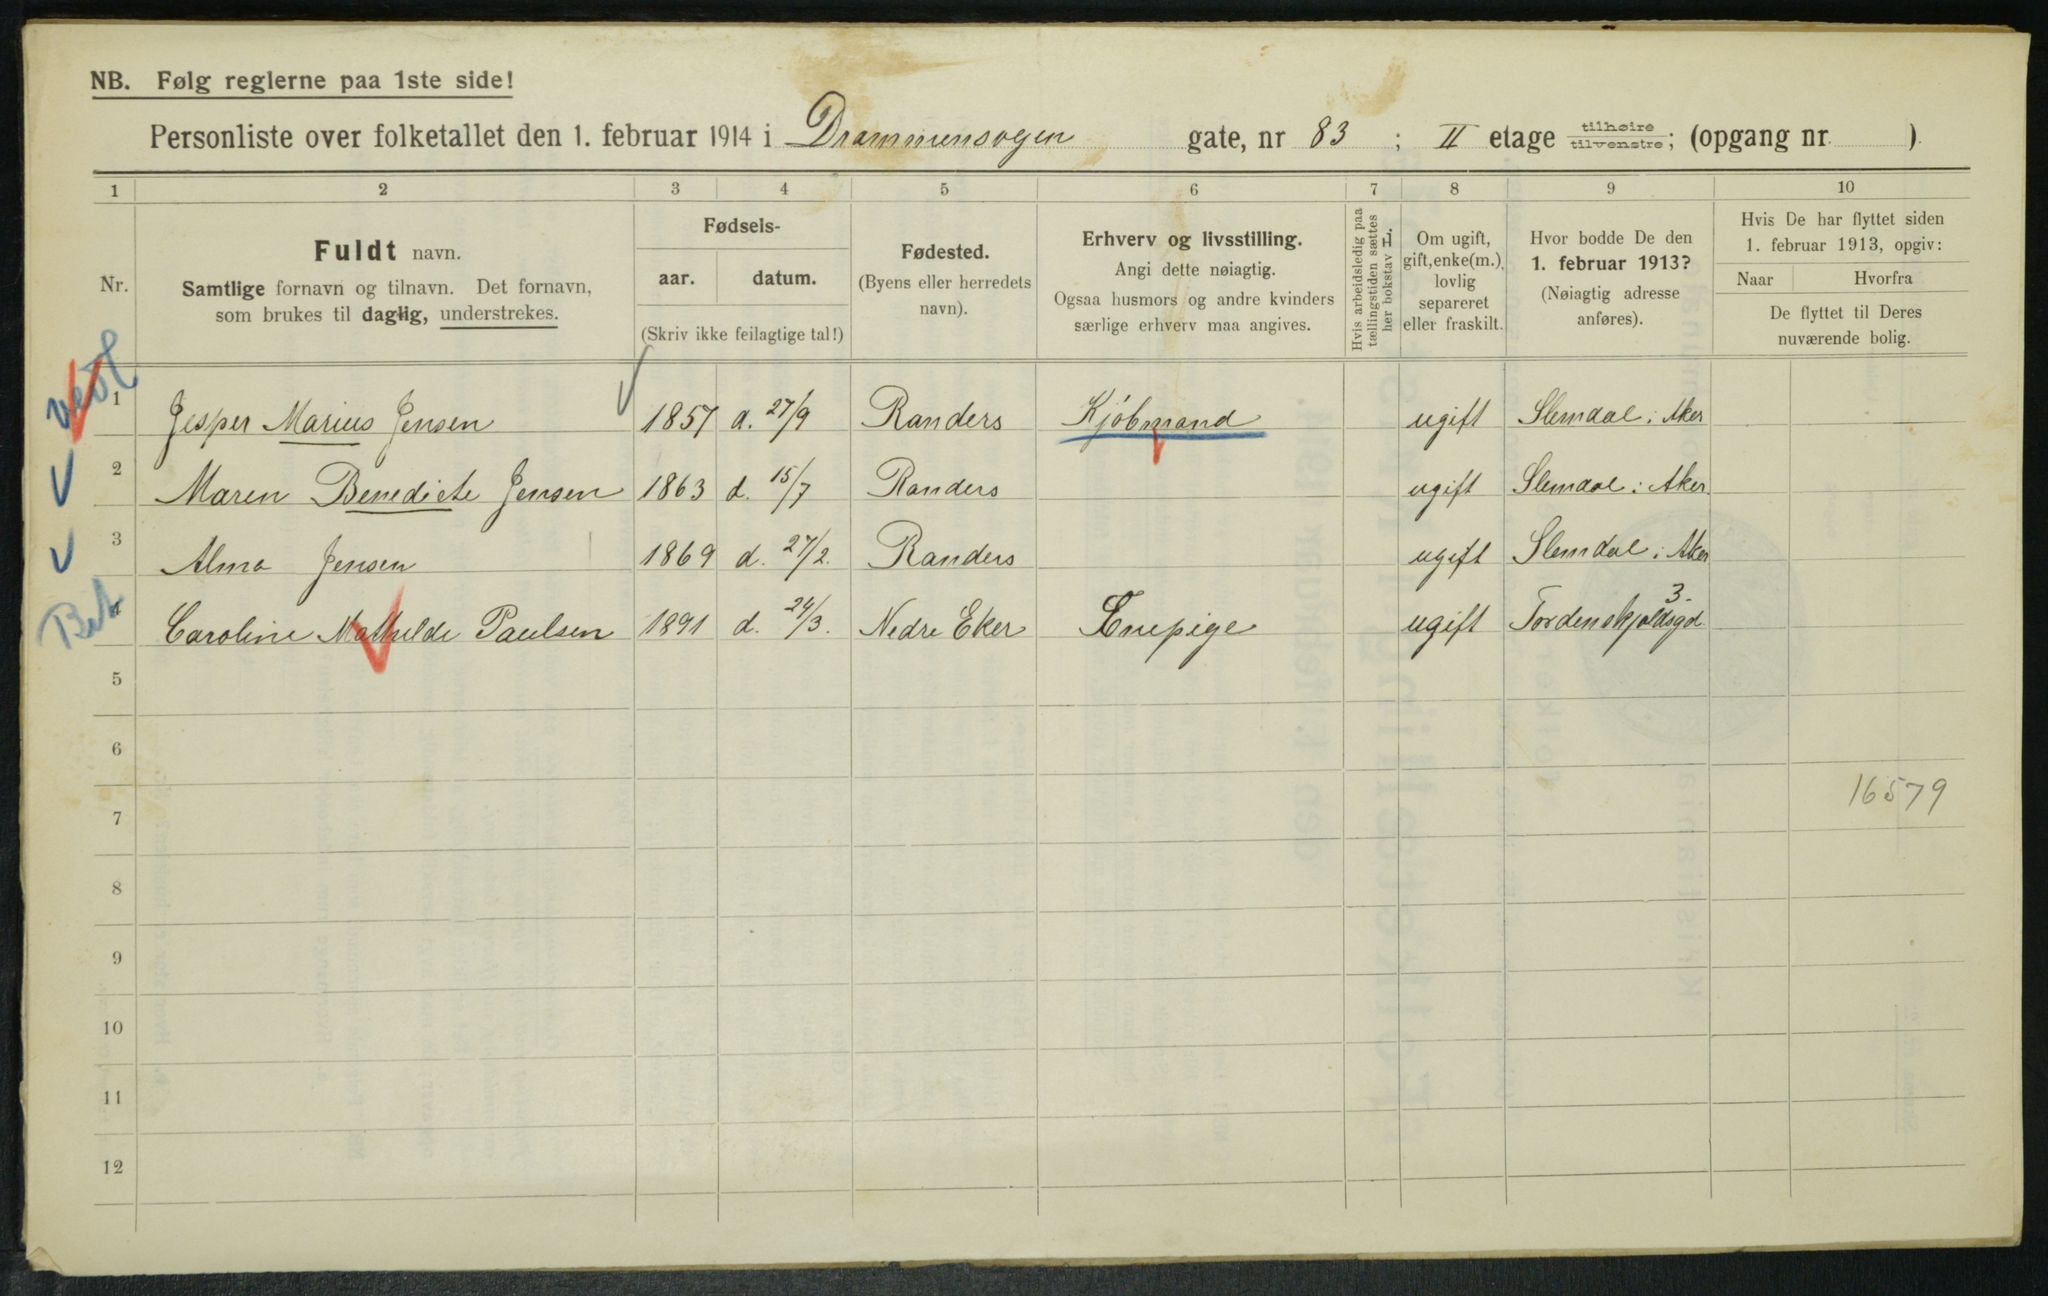 NB. Følg reglerne paa 1ste side!
Personliste over folketallet den 1. februar 1914 i Drammensvegen gate, nr 83 ; II etage tilhøire tilvenstre; (opgang nr. ).
1 2 3 4 5 6 7 8 9 10
Nr.
Fuldt navn.
Samtlige fornavn og tilnavn. Det fornavn,
som brukes til daglig, understrekes.
Fødsels-
aar. datum.
(Skriv ikke feilagtige tal!)
Fødested.
(Byens eller herredets
navn).
Erhverv og livsstilling.
Angi dette nøiagtig.
Ogsaa husmors og andre kvinders
særlige erhverv maa angives.
Hvis arbeidsledig paa
tællingstiden sættes
her bokstav L.
Om ugift,
gift, enke(m.),
lovlig
separeret
eller fraskilt.
Hvor bodde De den
1. februar 1913?
(Nøiagtig adresse
anføres).
Hvis De har flyttet siden
1. februar 1913, opgiv:
Naar Hvorfra
De flyttet til Deres
nuværende bolig.
1 Jesper Marius Jensen 1857 d. 27/9 Randers Kjöbmand ugift Slemdal i Aker
2 Maren Benedicte Jensen 1863 d. 15/7 Randers ugift Slemdal i Aker
3 Alma Jensen 1869 d. 27/2. Randers ugift Slemdal i Aker
4 Caroline Mathilde Paulsen 1891 d. 24/3. Nedre Eker Enepige ugift Tordenskjoldsgd 3.
5
6
7 16579
8
9
10
11
12